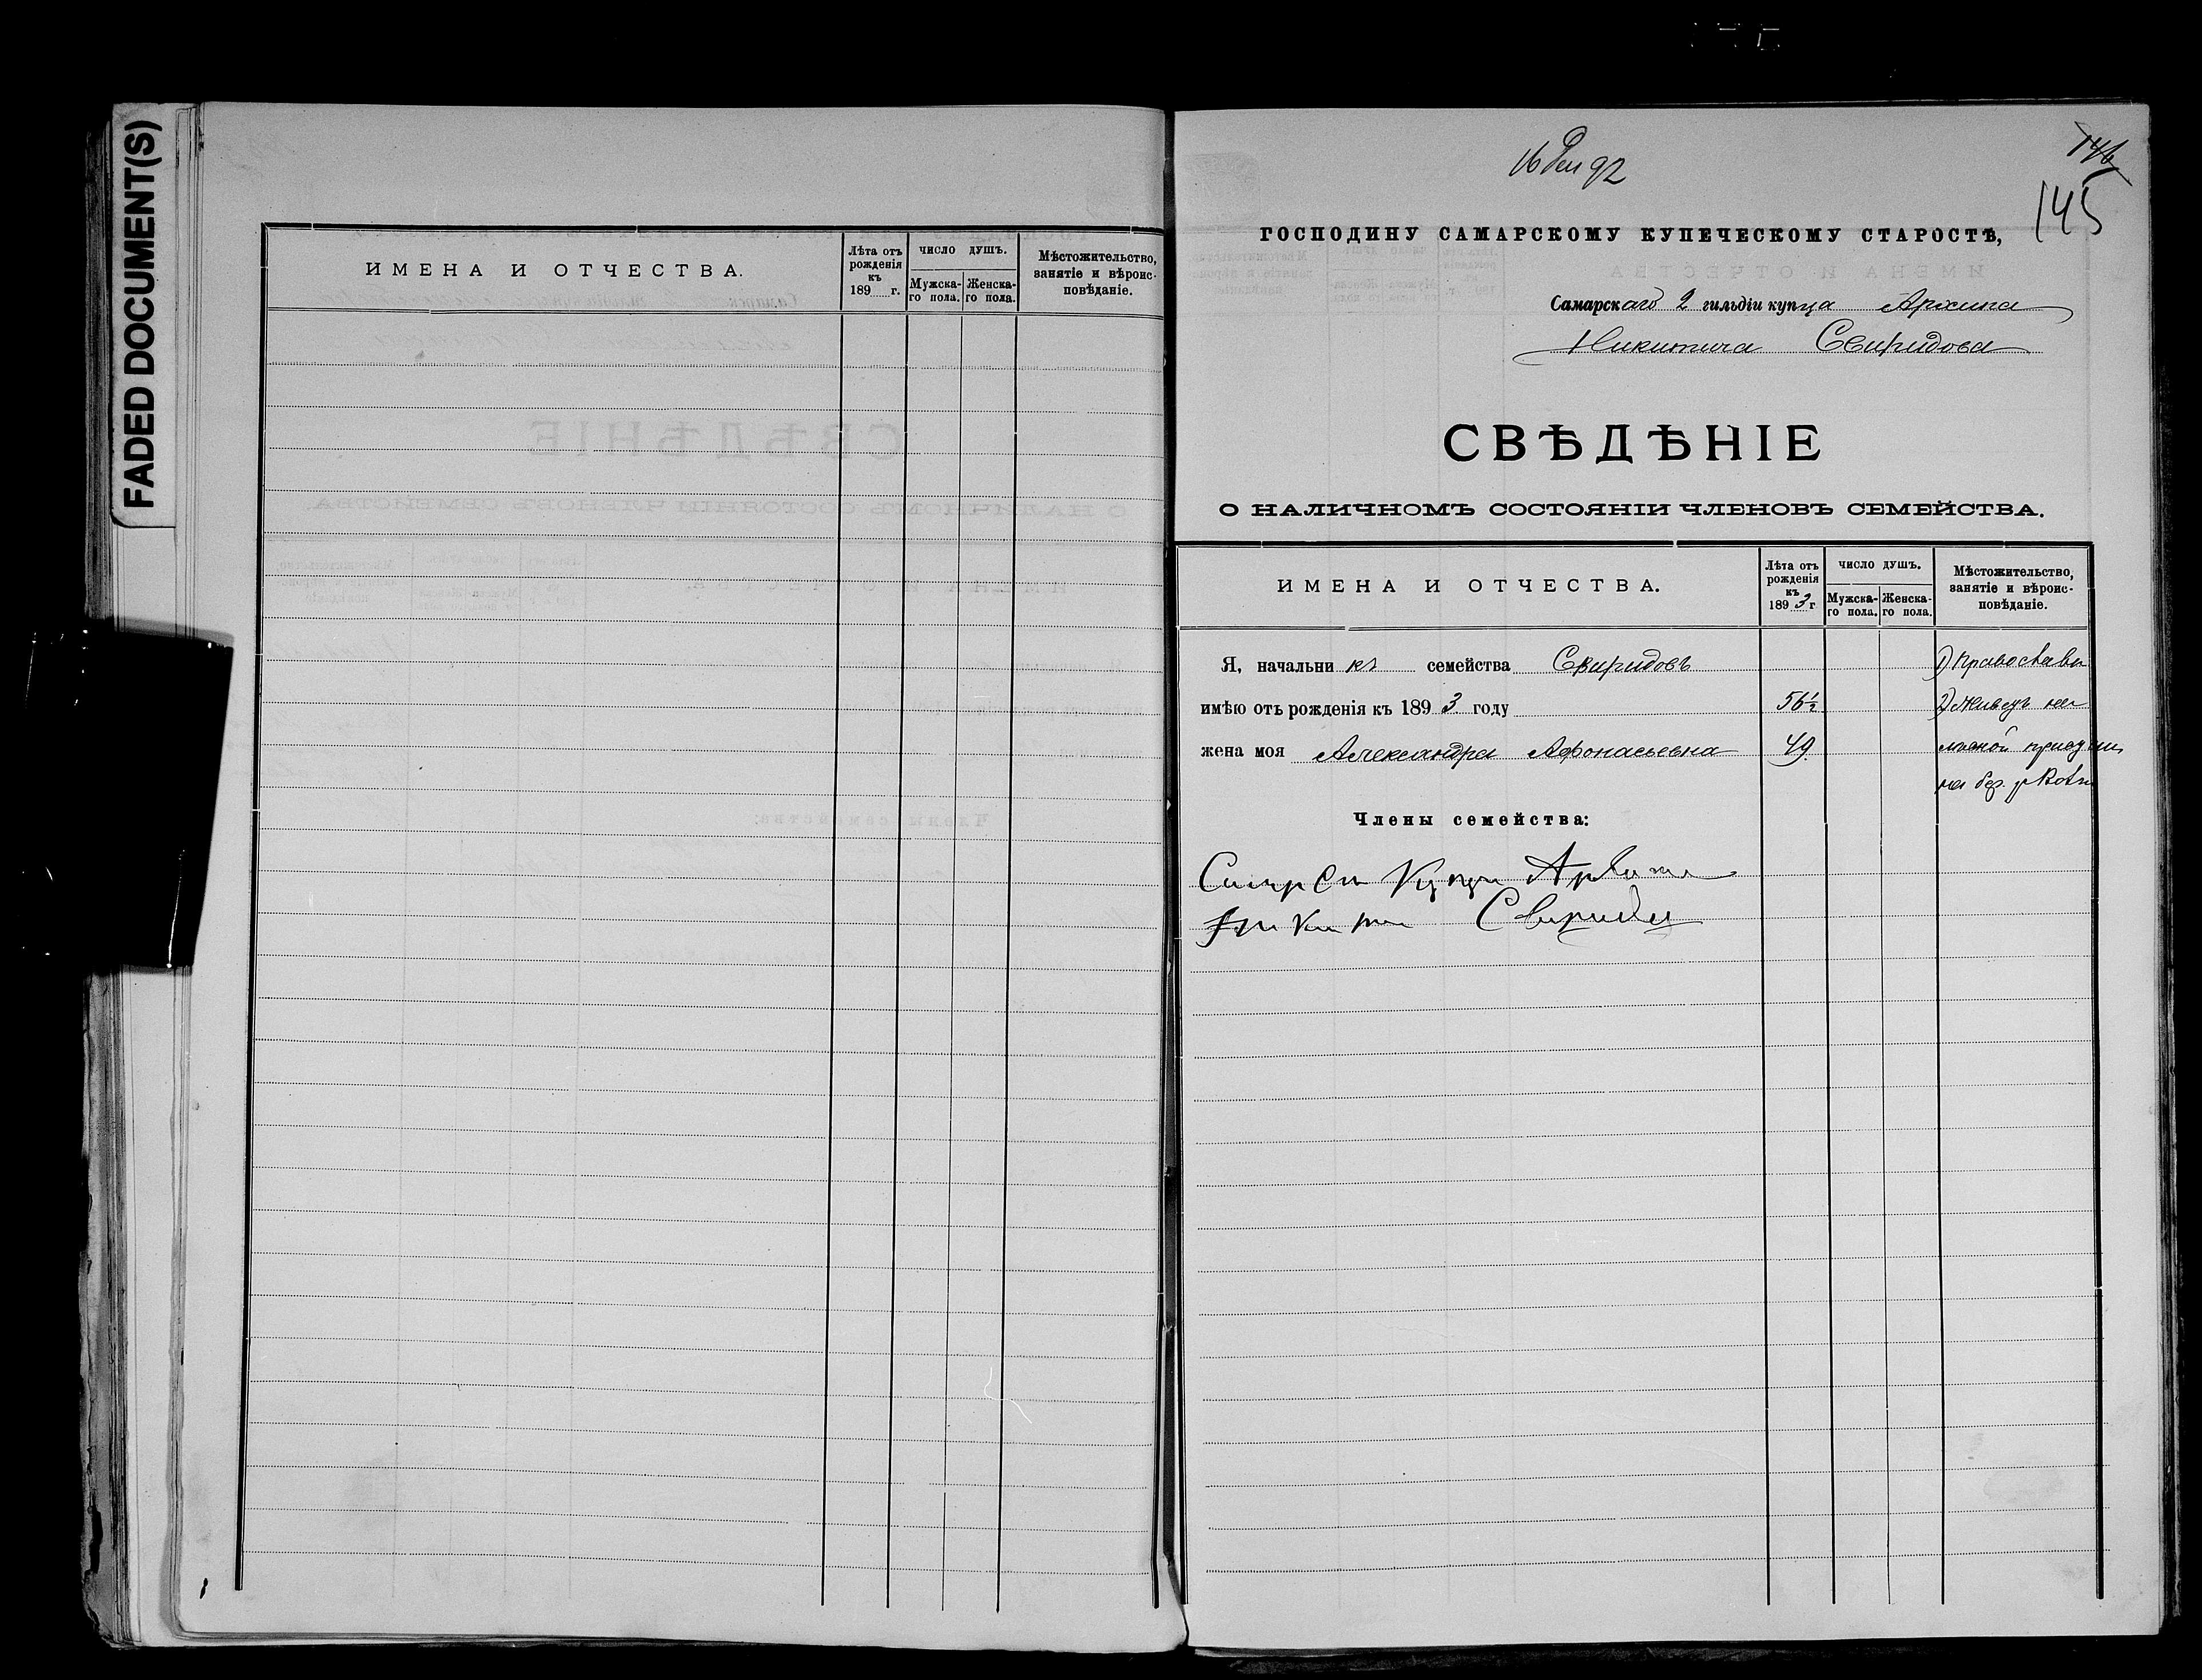 FADED DOCUMENT(S)
ИМЕНА И ОТЧЕСТВА.
Лѣта отъ рожденія къ 189 г.
ЧИСЛО ДУШЪ.
Мужска-го пола.
Женска-го пола.
Мѣстожительство, занятіе и вѣроис-повѣданіе.
16 Дек 92
146
145
ГОСПОДИНУ САМАРСКОМУ КУПЕЧЕСКОМУ СТАРОСТѢ,
Самарскаго 2 гильдіи купца Архипа
Никитича Свиридова
СВѢДѢНІЕ
О НАЛИЧНОМЪ СОСТОЯНІИ ЧЛЕНОВЪ СЕМЕЙСТВА.
ИМЕНА И ОТЧЕСТВА.
Лѣта отъ рожденія къ 1893 г
ЧИСЛО ДУШЪ.
Мужска-го пола.
Женска-го пола.
Мѣстожительство, занятіе и вѣроис-повѣданіе.
Я, начальникъ семейства Свиридовъ 1) Православн
имѣю отъ рожденія къ 1893 году 56½ 2) Живетъ на
жена моя Александра Афонасьевна 49
Члены семейства:
Купец Архип
Свирида